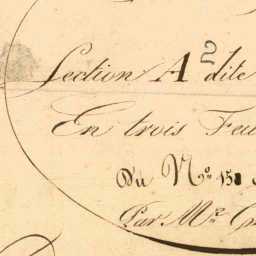 Section A 2 dite
En trois Feu
Du N.º 151
Par Mr.